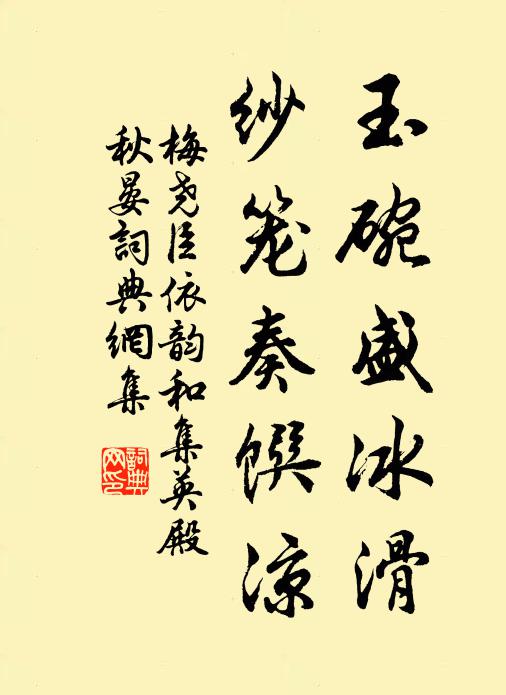 玉碗盛冰滑
纱笼奏馔凉
梅尧臣依韵和集英殿
秋晏詞典網集
詞典网印